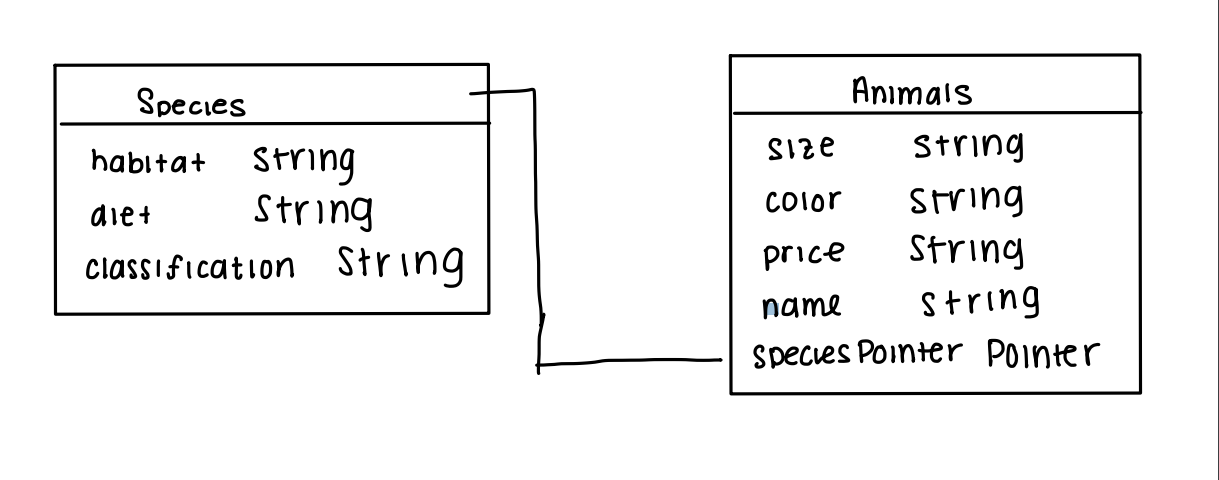 Species
habitat String
diet String
classification String
Animals
size String
color String
price String
name String
speciesPointer Pointer